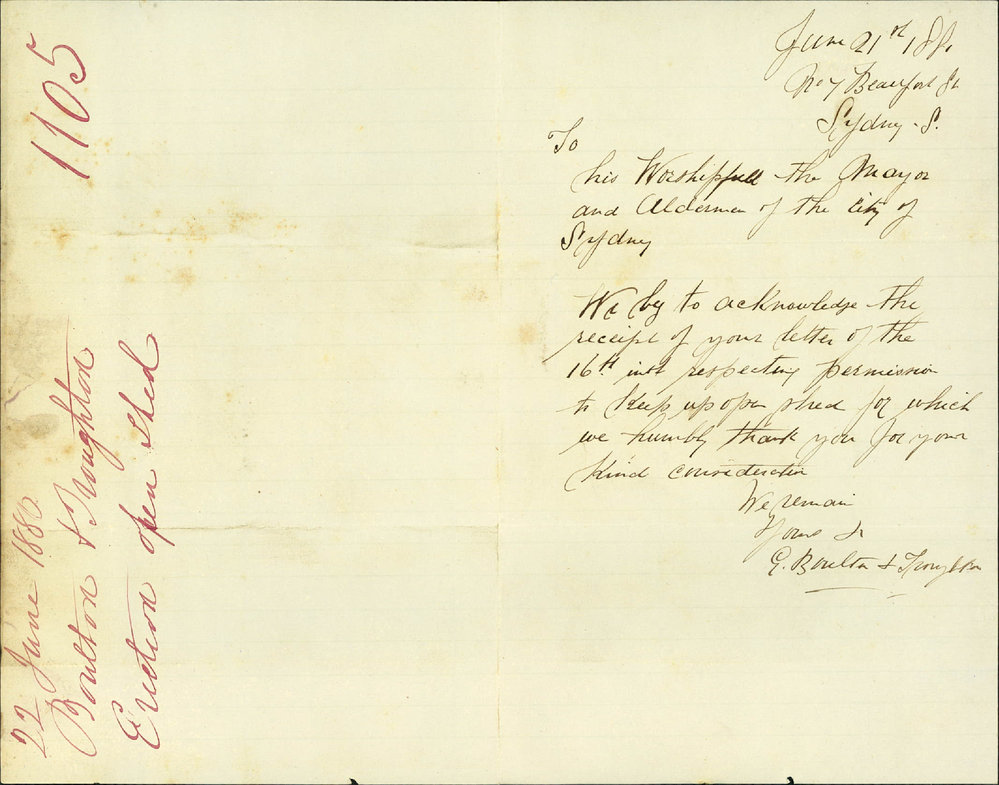 1105
22 June 1880
Boulton & Troughton
Erection open shed
June 21st 188
No 7 Beaufort St
Sydney - S.
To
his Worshipfull the Mayor
and Aldermen of the city of
Sydney
We beg to acknowledge the
receipt of your letter of the
16th inst respecting permission
to Keep up open shed for which
we humbly thank you for your
Kind consideration
We remain
Yours
E. Boulton & Troughton